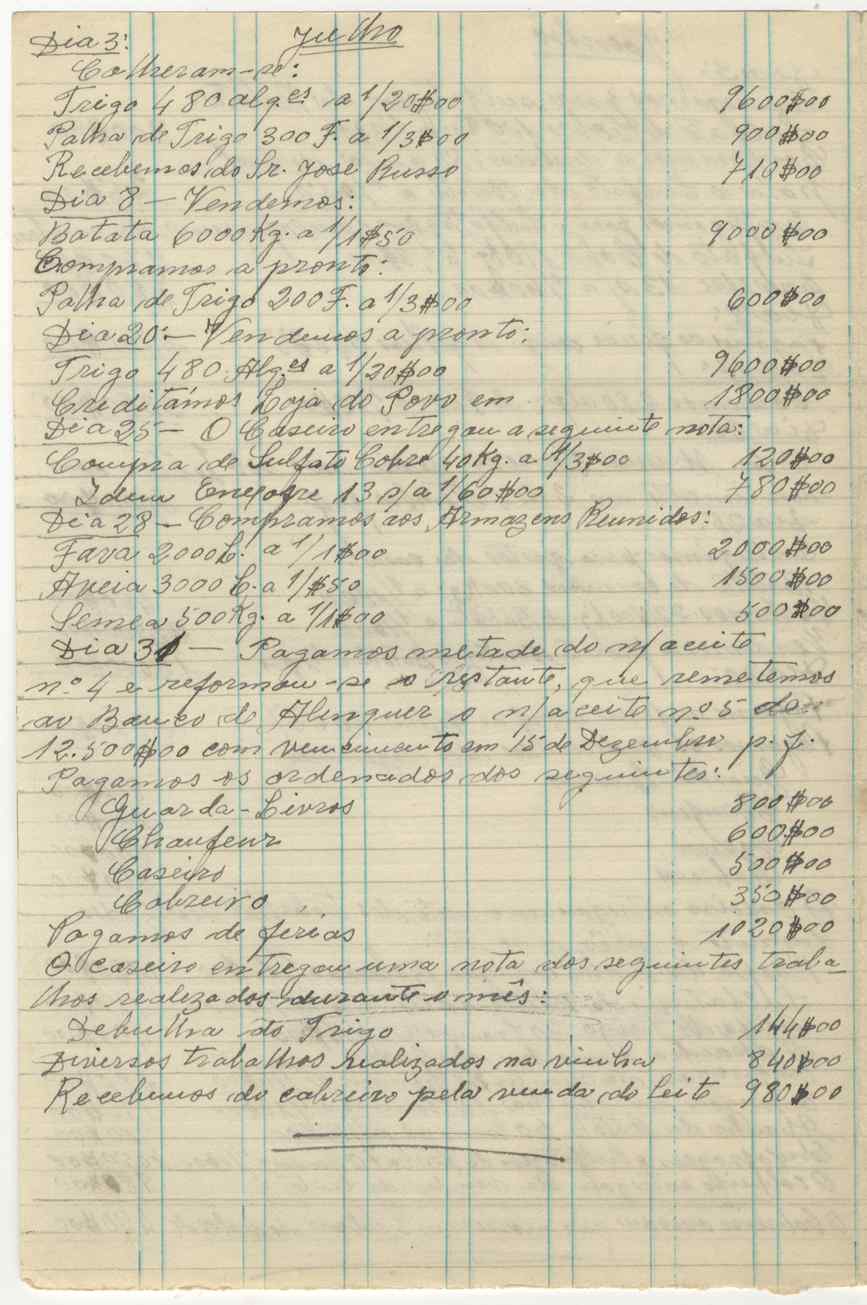 Julho
Dia 3:
Colheram-se:
Trigo 480 alq.es a 1/20$00 9600$00
Palha de Trigo 300 F. a 1/3$00 900$00
Recebemos do Sr. José Russo 710$00
Dia 8 — Vendemos:
Batata 6000 Kg. a 1/1$50 9000$00
Compramos a pronto:
Palha de Trigo 200 F. a 1/3$00 600$00
Dia 20 — Vendemos a pronto:
Trigo 480 Alq.es a 1/20$00 9600$00
Creditámos Loja do Povo em 1800$00
Dia 25 — O Caseiro entregou a seguinte nota:
Compra de Sulfato Cobre 40 Kg. a 1/3$00 120$00
Idem Enexofre 13 s/a 1/60$00 780$00
Dia 28 — Compramos aos Armazens Reunidos:
Fava 2000 L. a 1/1$00 2000$00
Aveia 3000 L. a 1/$50 1500$00
Semea 500 Kg. a 1/1$00 500$00
Dia 31 — Pagamos metade do n/aceite
nº 4 e reformou-se o restante, que remetemos
ao Banco de Alenquer o n/aceite nº 5 de
12.500$00 com vencimento em 15 de Dezembro p. f.
Pagamos os ordenados dos seguintes:
Guarda-Livros 800$00
Chaufeur 600$00
Caseiro 500$00
Cabreiro 350$00
Pagamos de férias 1020$00
O caseiro entregou uma nota dos seguintes traba-
lhos realizados durante o mês:
Debulha do Trigo 144$00
Diversos trabalhos realizados na vinha 840$00
Recebemos do cabreiro pela venda do leite 980$00